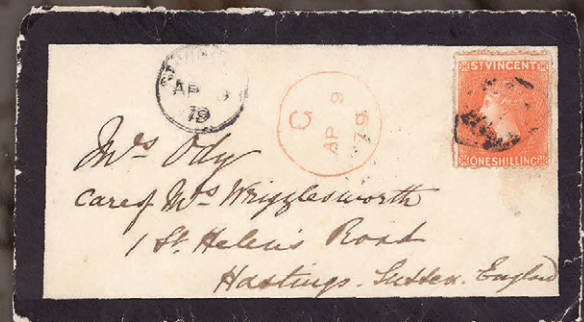 AP 9
79
C
AP 9
79
ST VINCENT
ONE SHILLING
Mrs Ody
Care of Mrs Wrigglesworth
1 St. Helen's Road
Hastings. Sussex. England